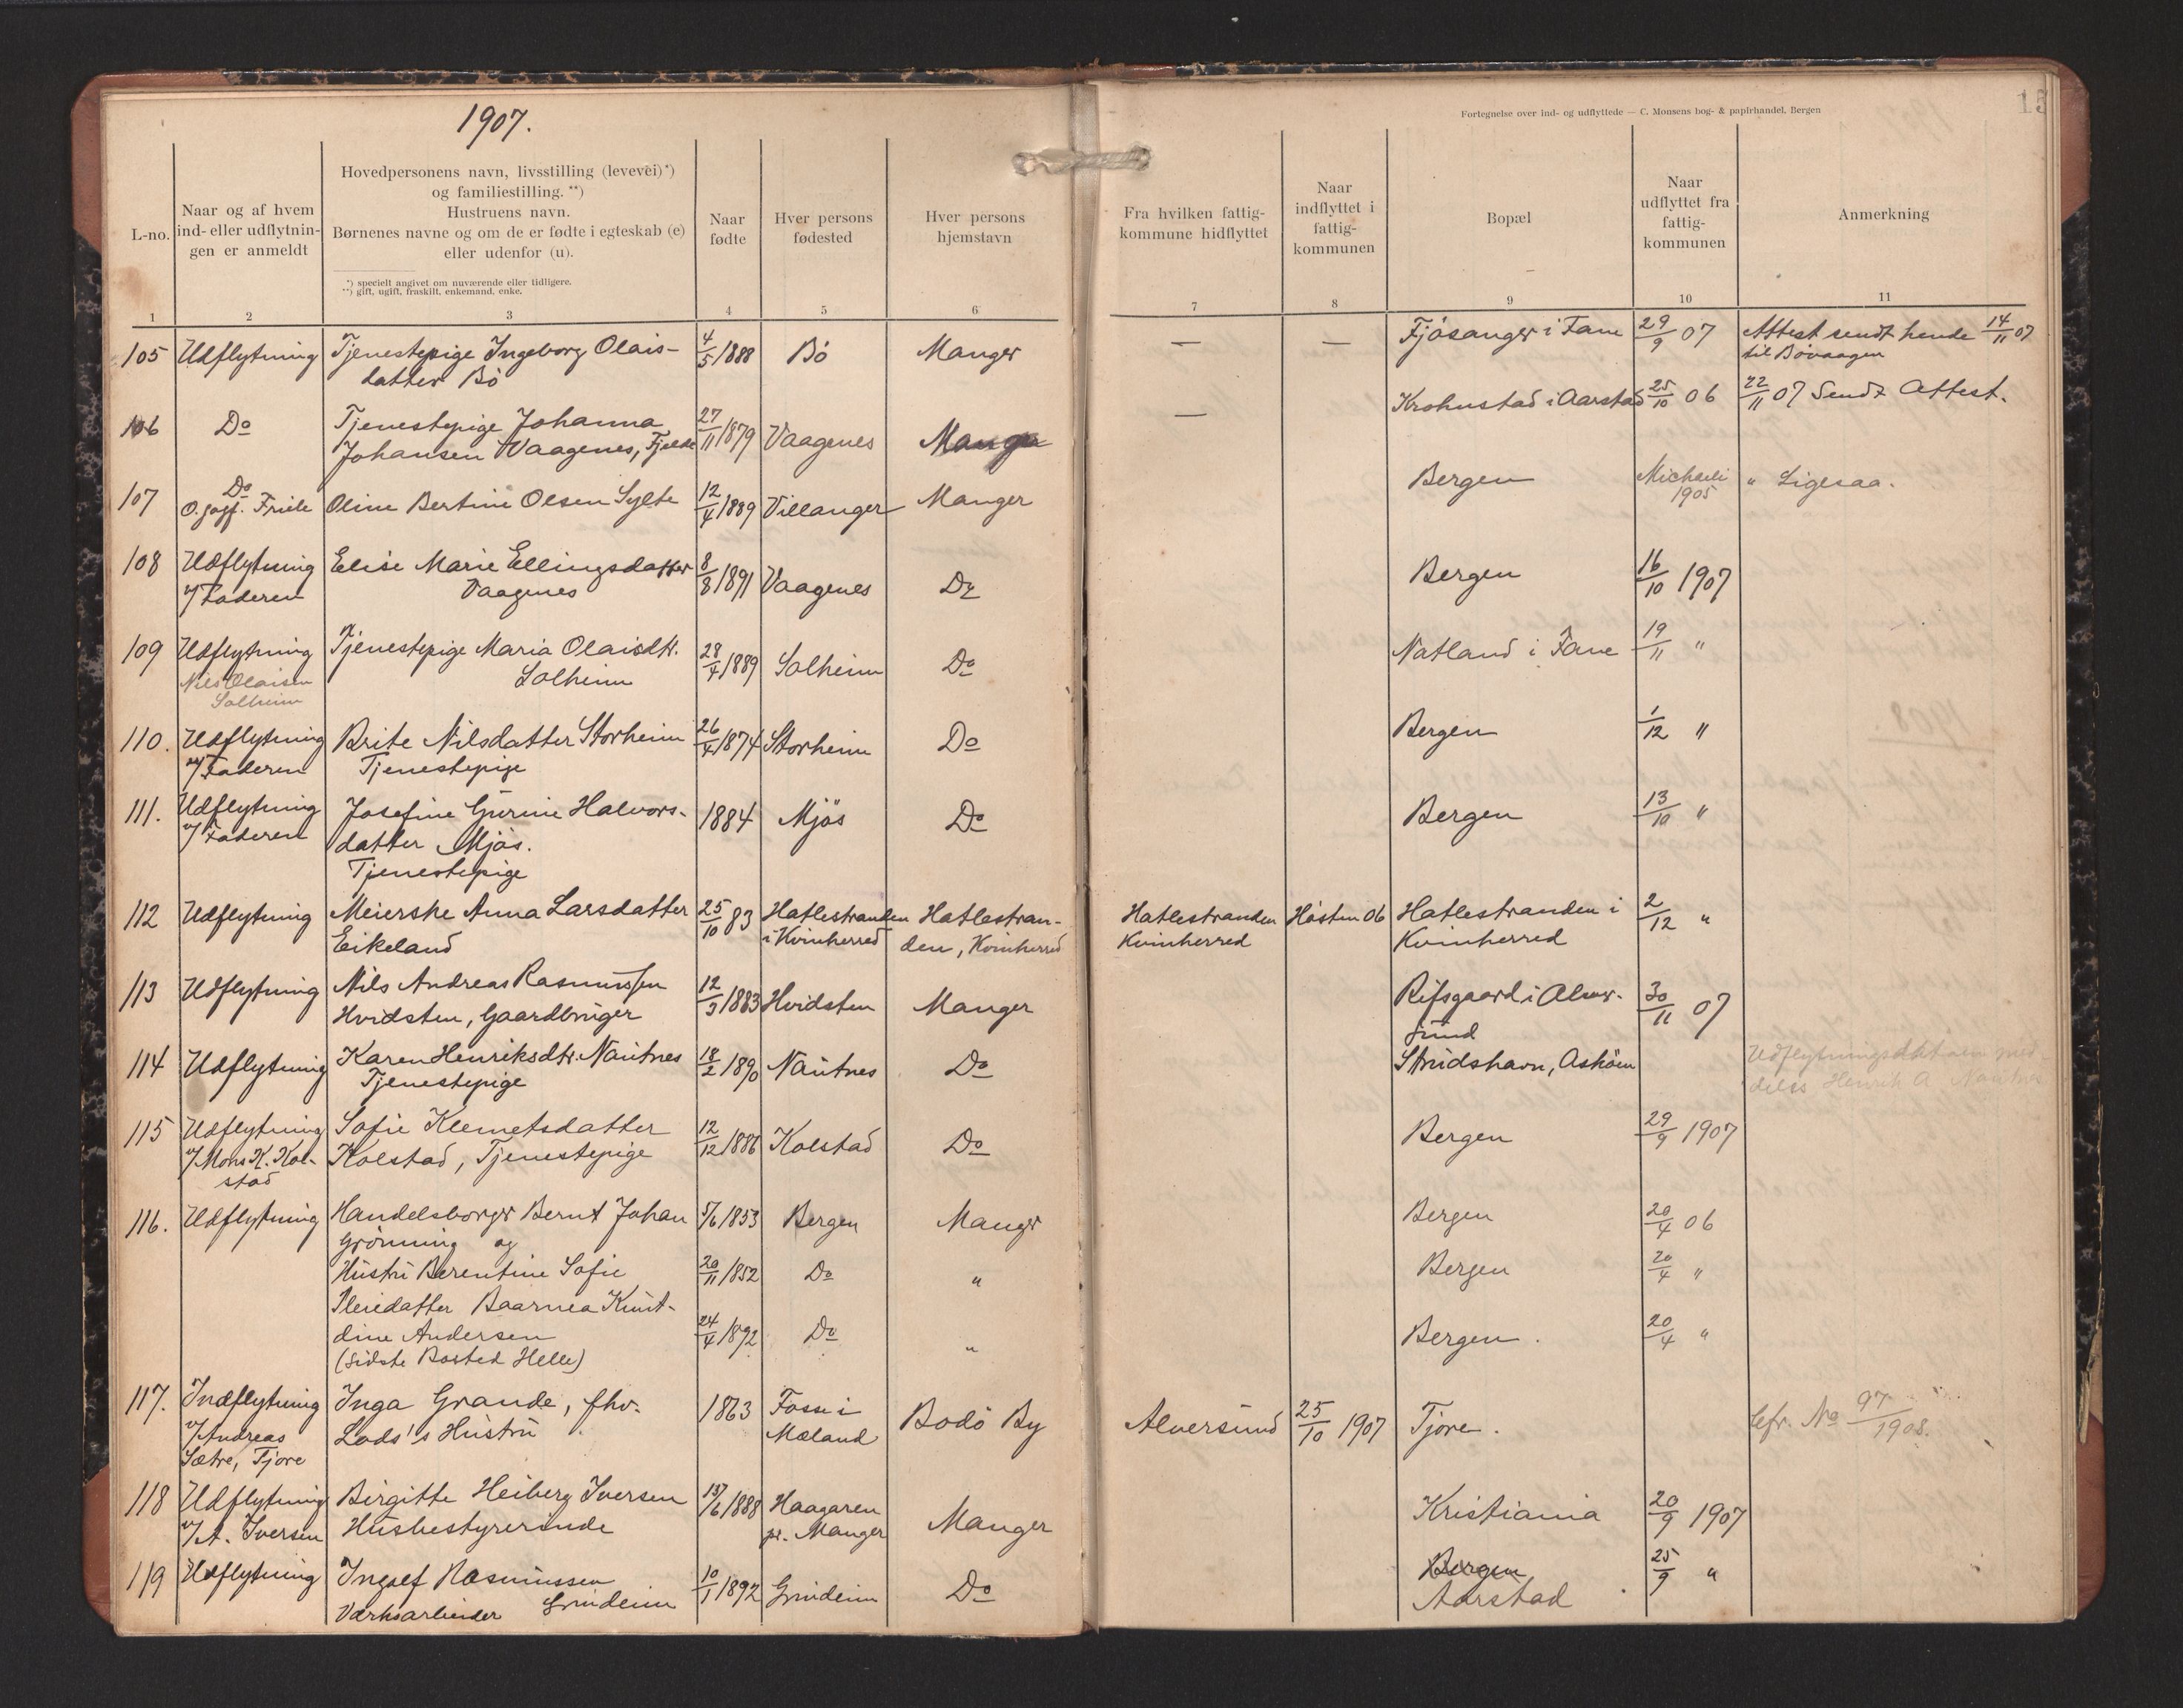 1907.
Fortegnelse over ind- og udflyttede — C. Monsens bog- & papirhandel, Bergen
15
L-no.
Naar og af hvem
ind- eller udflytnin-
gen er anmeldt
Hovedpersonens navn, livsstilling (levevei)*)
og familiestilling.**)
Hustruens navn.
Børnenes navne og om de er fødte i egteskab (e)
eller udenfor (u).
*) specielt angivet om nuværende eller tidligere.
**) gift, ugift, fraskilt, enkemand, enke.
Naar
fødte
Hver persons
fødested
Hver persons
hjemstavn
Fra hvilken fattig-
kommune hidflyttet
Naar
indflyttet i
fattig-
kommunen
Bopæl
Naar
udflyttet fra
fattig-
kommunen
Anmerkning
1 2 3 4 5 6 7 8 9 10 11
105 Udflytning Tjenestepige Ingeborg Olais- 4/5 1888 Bö Manger — — Fjösanger i Fane 29/9 07 Attest sendt hende 14/11 07
datter Bö til Bövaagen
106 Do Tjenestepige Johanna 27/11 1879 Vaagenes Manger — Krohnstad i Aarstad 25/10 06 22/11 07 Sendt Attest.
Johansen Vaagenes, Fjelde
107 Do Oline Bertine Olsen Sylte 12/4 1889 Villanger Manger Bergen Michaeli 1905 " Ligesaa.
O. Friele
108 Udflytning Elise Marie Ellingsdatter 8/8 1891 Vaagenes Do Bergen 16/10 1907
v/ Faderen Vaagenes
109 Udflytning Tjenestepige Maria Olaisdtr. 28/4 1889 Solheim Do Natland i Fane 19/11 "
Nils Olaisen Solheim
Solheim
110. Udflytning Brite Nilsdatter Storheim 26/4 1874 Storheim Do Bergen 1/12 "
v/ Faderen Tjenestepige
111. Udflytning Josefine Gurine Halvors- 1884 Mjös Do Bergen 13/10 "
v/ Faderen datter Mjös.
Tjenestepige
112 Udflytning Meierske Anna Larsdatter 25/10 83 Hatlestranden Hatlestran- Hatlestranden Hösten 06 Hatlestranden i 2/12 "
Eikeland i Kvinherred den, Kvinherred Kvinherred Kvinherred
113 Udflytning Nils Andreas Rasmussen 12/3 1883 Hvidsten Manger Rifsgaard i Alver- 30/11 07
Hvidsten, Gaardbruger sund
114 Udflytning Karen Henriksdtr. Nautnes 18/2 1890 Nautnes Do Strudshavn, Asköen Udflytningsdatoen med
Tjenestepige deles Henrik A Nautnes
115 Udflytning Sofie Klemetsdatter 12/12 1886 Kolstad Do Bergen 29/9 1907
v/ Mons K. Kol- Kolstad, Tjenestepige
stad
116. Udflytning Handelsborger Bernt Johan 5/6 1853 Bergen Manger Bergen 20/4 06
Grönning og
Hustru Berentine Sofie 20/11 1852 Do " Bergen 20/4 "
Pleiedatter Baarnea Knut-
dine Andersen 24/4 1892 Do " Bergen. 20/4 "
(sidste Bosted Helle)
117. Indflytning Inga Grande, fhv. 1863 Fosse i Bodö By Alversund 25/10 1907 Tjore. Cfr. No 97/1908.
v/ Andreas Lods's Hustru Mæland
Sætre, Tjore
118 Udflytning Birgitte Heiberg Iversen 15/6 1888 Haagaren Manger Kristiania 20/9 1907
v/ A. Iversen Husbestyrerinde pr. Manger
119 Udflytning Ingolf Rasmussen 10/1 1892 Grindeim Do Bergen 25/9 "
Værksarbeider Grindeim Aarstad